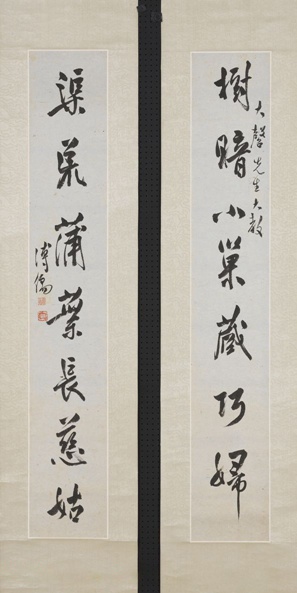 樹暗小巢藏巧婦
先生大教
渠荒蒲葉長慈姑
溥儒